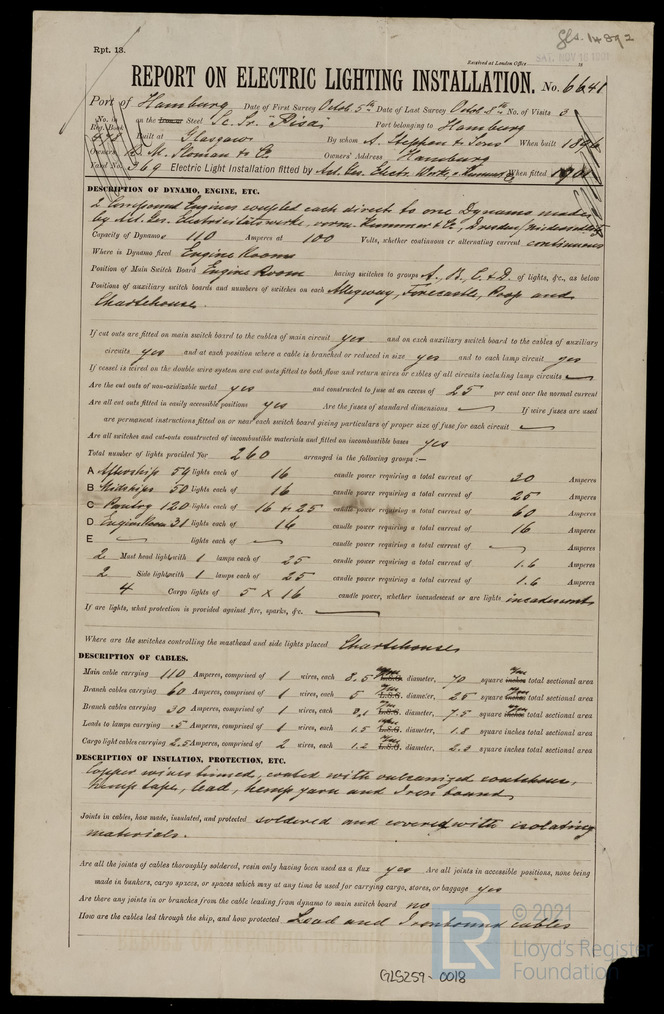 Gls. 14892
Rpt. 13.
Received at London Office
SAT. NOV 16 1901
REPORT ON ELECTRIC LIGHTING INSTALLATION. No. 6641
Port of Hamburg Date of First Survey Octob. 5th Date of Last Survey Octob. 8th No. of Visits 3
No. in Reg. Book on the Iron or Steel Sc. Sr. "Pisa" Port belonging to Hamburg
Built at Glasgow By whom A. Stephen & Sons When built 1896
Owners R. M. Sloman & Co. Owners' Address Hamburg
Yard No. 369 Electric Light Installation fitted by Act. Ges. Electr. Werke, v. Kummer & Co When fitted 1901
DESCRIPTION OF DYNAMO, ENGINE, ETC.
2 Compound Engines coupled each direct to one Dynamo made
by Act. Ges. Electricitätswerke vorm. Kummer & Co, Dresden, Niedersedlitz
Capacity of Dynamos 110 Amperes at 100 Volts, whether continuous or alternating current continuous
Where is Dynamo fixed Engine Rooms
Position of Main Switch Board Engine Room having switches to groups A, B, C & D of lights, &c., as below
Positions of auxiliary switch boards and numbers of switches on each Alleyway, Forecastle, Poop and
Chartehouse.
If cut outs are fitted on main switch board to the cables of main circuit yes and on each auxiliary switch board to the cables of auxiliary
circuits yes and at each position where a cable is branched or reduced in size yes and to each lamp circuit yes
If vessel is wired on the double wire system are cut outs fitted to both flow and return wires or cables of all circuits including lamp circuits
Are the cut outs of non-oxidizable metal yes and constructed to fuse at an excess of 25 per cent over the normal current
Are all cut outs fitted in easily accessible positions yes Are the fuses of standard dimensions If wire fuses are used
are permanent instructions fitted on or near each switch board giving particulars of proper size of fuse for each circuit
Are all switches and cut-outs constructed of incombustible materials and fitted on incombustible bases yes
Total number of lights provided for 260 arranged in the following groups :—
A Aftership 59 lights each of 16 candle power requiring a total current of 30 Amperes
B Midships 50 lights each of 16 candle power requiring a total current of 25 Amperes
C 120 lights each of 16 + 25 candle power requiring a total current of 60 Amperes
D Engine Room 31 lights each of 16 candle power requiring a total current of 16 Amperes
E lights each of candle power requiring a total current of Amperes
2 Mast head light with 1 lamps each of 25 candle power requiring a total current of 1.6 Amperes
2 Side light with 1 lamps each of 25 candle power requiring a total current of 1.6 Amperes
4 Cargo lights of 5 x 16 candle power, whether incandescent or arc lights incadescents
If arc lights, what protection is provided against fire, sparks, &c.
Where are the switches controlling the masthead and side lights placed Chartehouse
DESCRIPTION OF CABLES.
Main cable carrying 110 Amperes, comprised of 1 wires, each 8.5 L.S.G. diameter, 70 square inches total sectional area
Branch cables carrying 60 Amperes, comprised of 1 wires, each 5 L.S.G. diameter, 25 square inches total sectional area
Branch cables carrying 30 Amperes, comprised of 1 wires, each 3.1 L.S.G. diameter, 7.5 square inches total sectional area
Leads to lamps carrying .5 Amperes, comprised of 1 wires, each 1.5 L.S.G. diameter, 1.8 square inches total sectional area
Cargo light cables carrying 2.5 Amperes, comprised of 2 wires, each 1.2 L.S.G. diameter, 2.3 square inches total sectional area
DESCRIPTION OF INSULATION, PROTECTION, ETC.
Copper wires tinned, coated with vulcanized coutchouc,
Hemp tape, lead, hemp yarn and Iron bound
Joints in cables, how made, insulated, and protected soldered and covered with isolating
materials.
Are all the joints of cables thoroughly soldered, resin only having been used as a flux yes Are all joints in accessible positions, none being
made in bunkers, cargo spaces, or spaces which may at any time be used for carrying cargo, stores, or baggage yes
Are there any joints in or branches from the cable leading from dynamo to main switch board no
How are the cables led through the ship, and how protected Lead and Ironbound cables
LR © 2021
Lloyd's Register
Foundation
GLS259-0018